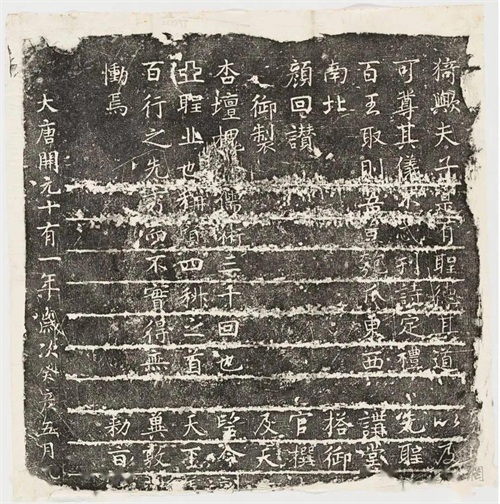 猗歟夫子寔有聖德其道 以為
可尊其儀不忒刊詩定禮 先聖
百王取則吾豈匏瓜東西 講堂
南北 搭御
顏回讚 官撰
御製 及天
杏壇槐 儒術三千回也 望令
亞聖丘也稱賢四科之首 天下
百行之先秀而不實得無 冀敦
慟焉 勅旨
大唐開元十有一年歲次癸亥五月